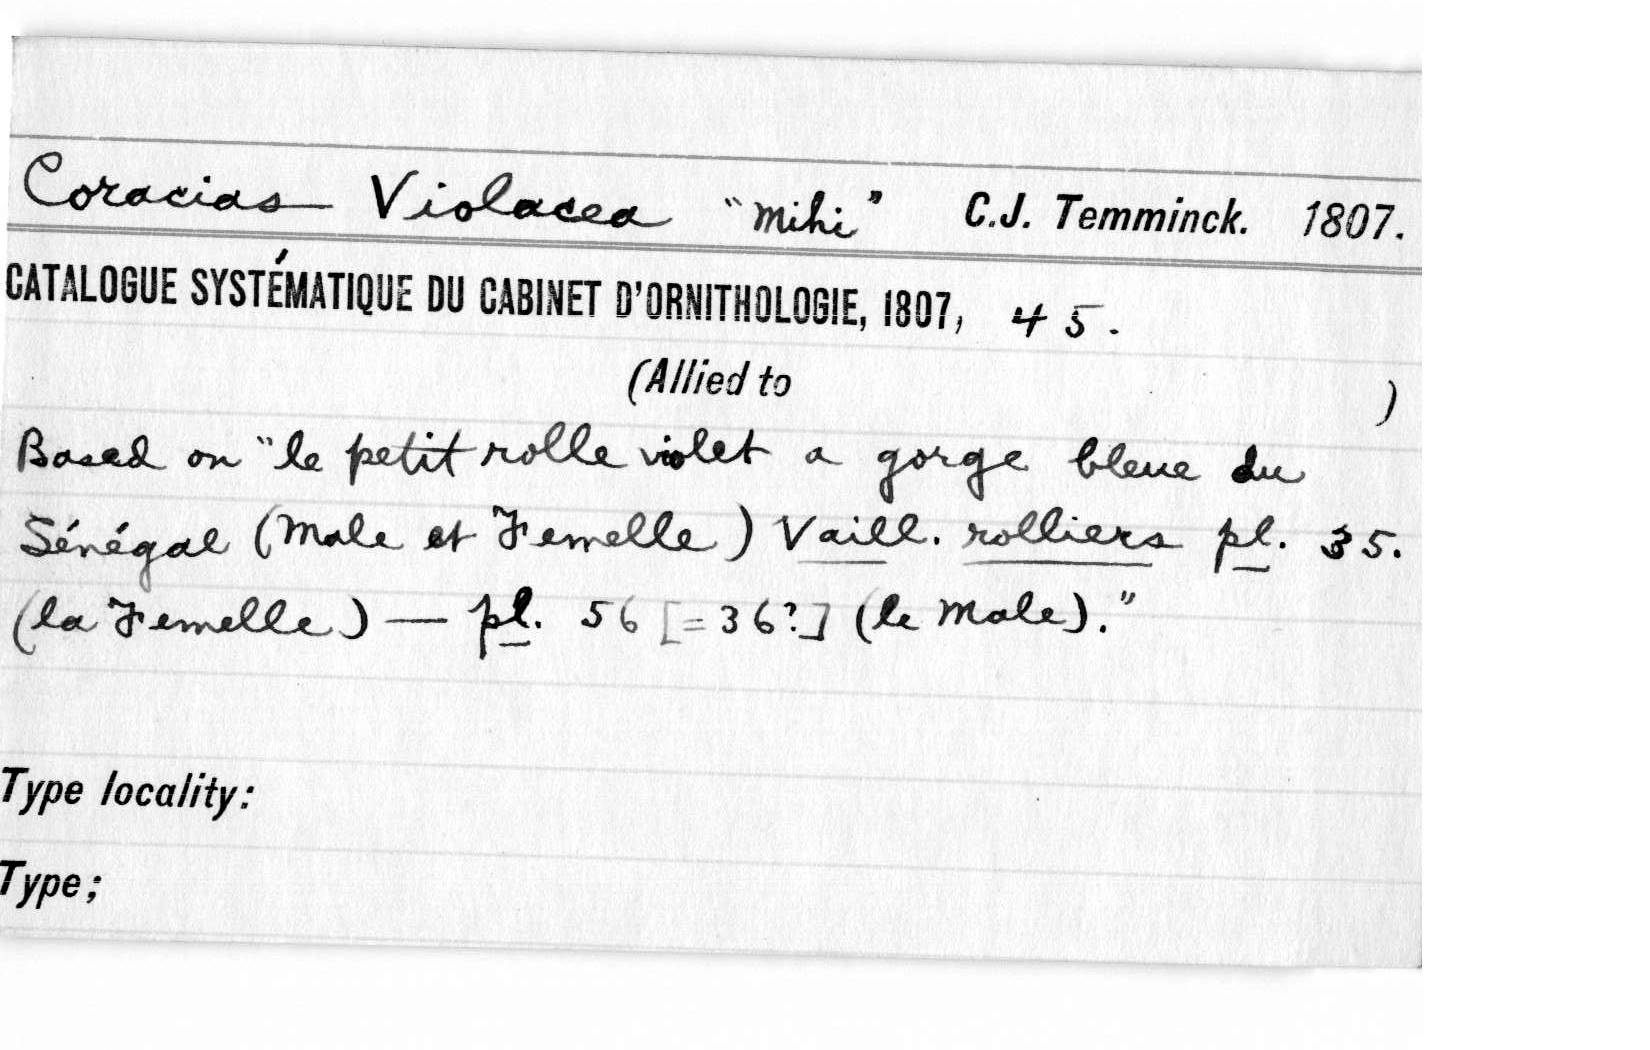 Coracias Violacea "Mihi" C.J. Temminck. 1807.
CATALOGUE SYSTÉMATIQUE DU CABINET D'ORNITHOLOGIE, 1807, 45.
(Allied to )
Based on "le petit rolle violet a gorge bleue du
Sénégal (Male et Femelle) Vaill. rolliers pl. 35.
(la Femelle) — pl. 56 [=36?] (le Male)."
Type locality:
Type;